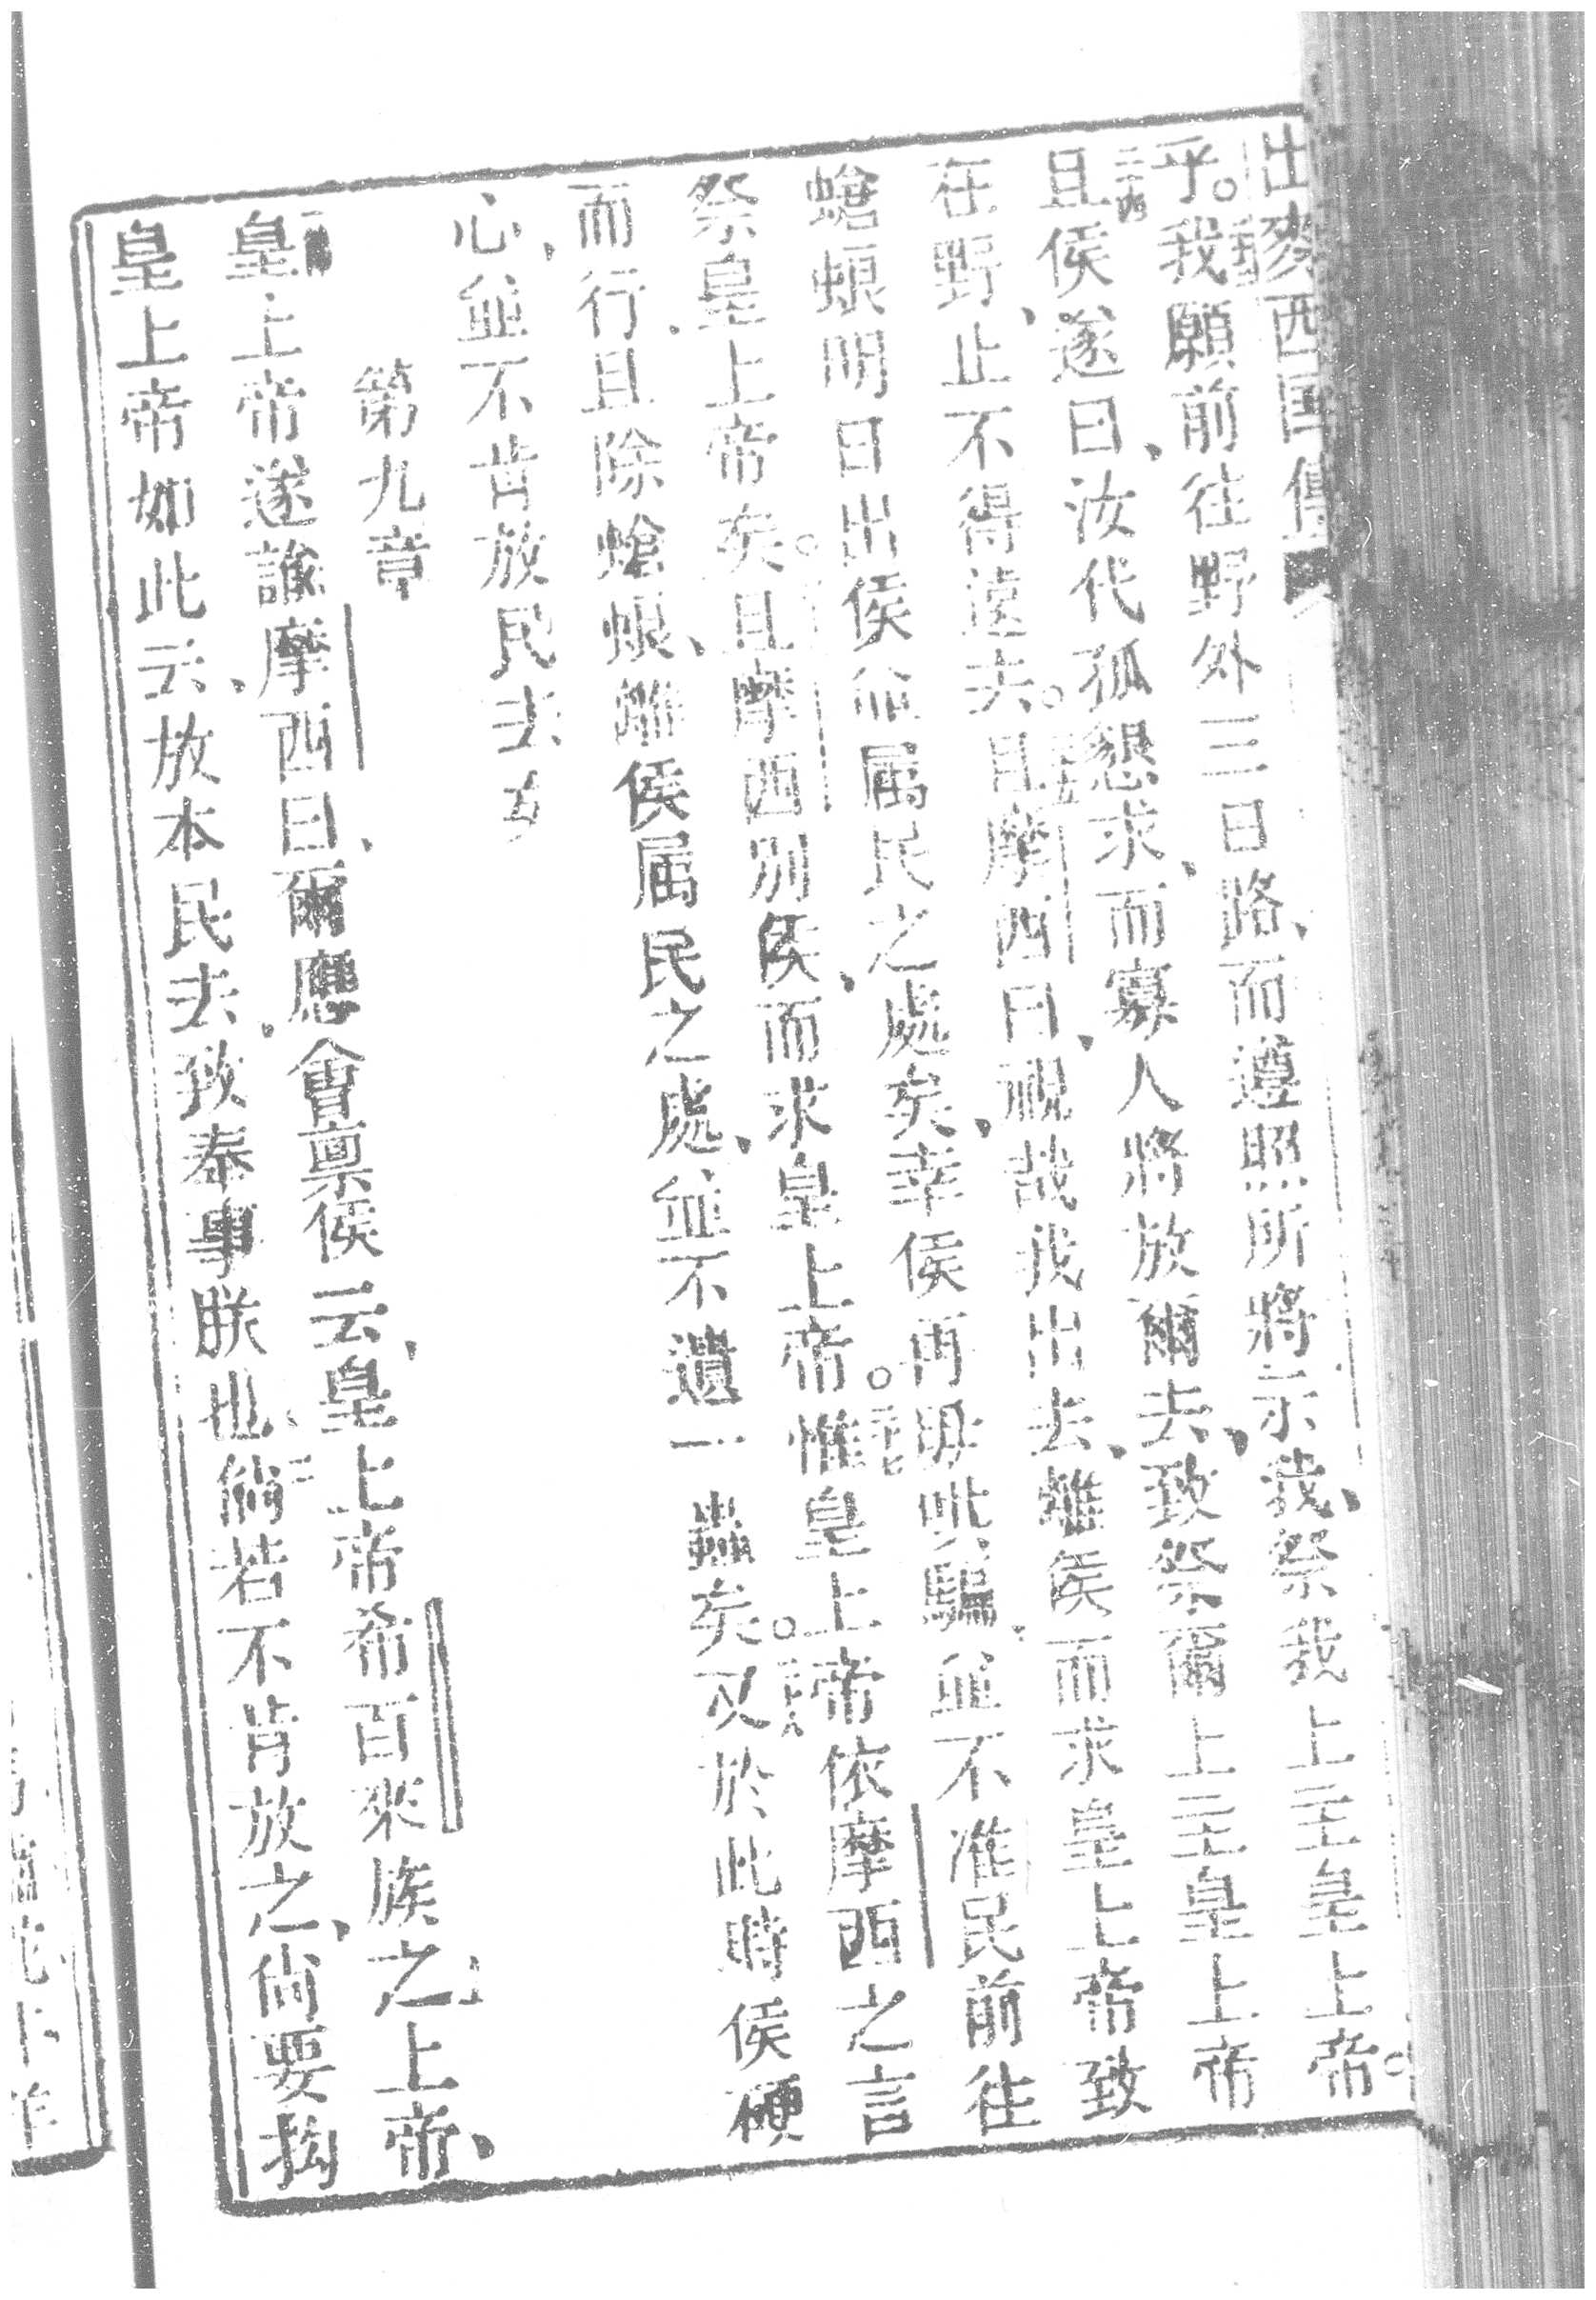 出麥西国傳
乎。我願前往野外三日路、而遵照所將示我、祭我上主皇上帝。
且侯遂曰、汝代孤懇求、而寡人將放爾去、致祭爾上主皇上帝
在野、止不得遠去。且摩西曰、視哉我出去、離侯而求皇上帝致
螥蜋明日出侯並属民之處矣、幸侯再毋哄騙、並不准民前往
祭皇上帝矣。且摩西別侯、而求皇上帝。惟皇上帝依摩西之言
而行、且除螥蜋、離侯属民之處、並不遺一蟲矣。又於此時侯硬
心、並不肯放民去
第九章
皇上帝遂諭摩西曰、爾應會稟侯云、皇上帝希百來族之上帝、
皇上帝如此云、放本民去、致奉事朕也、倘若不肯放之、尚要拘